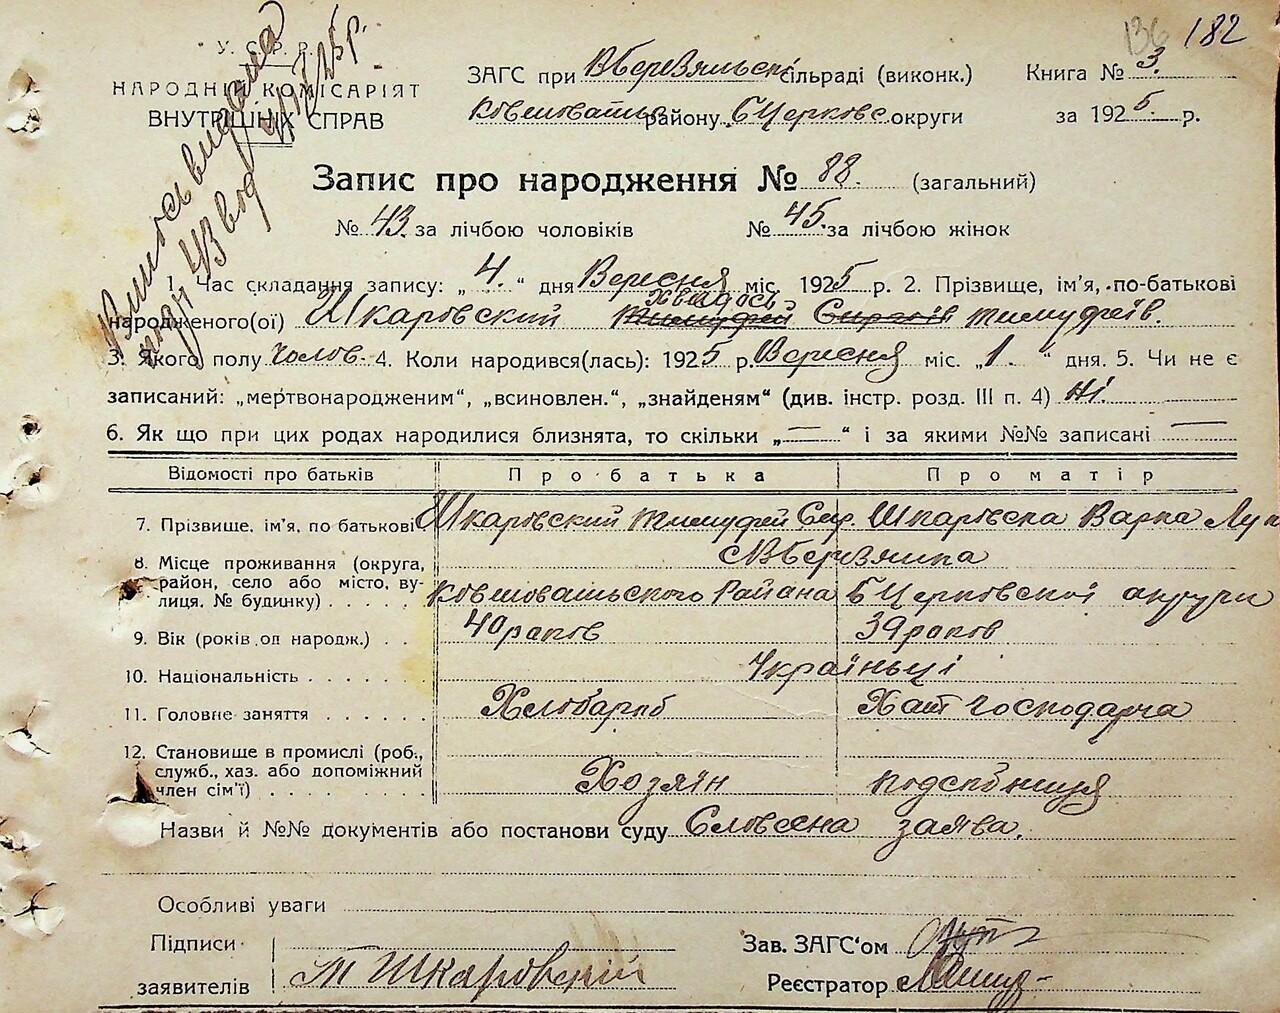 136 182
У. С. Р. Р.
НАРОДНІЙ КОМІСАРІЯТ
ВНУТРІШНІХ СПРАВ
ЗАГС при ВБерезянські сільраді (виконк.) Книга № 3.
Ковшоватсь району БЦерковс. округи за 1925 р.
Запис про народження № 88. (загальний)
№ 43. за лічбою чоловіків № 45. за лічбою жінок
1. Час складання запису: „ 4. “ дня Вересня міс. 1925 р. 2. Прізвище, ім'я, по-батькові
народженого(ої) Шкаровский Тимуфей Хведось Тимуфеїв.
3. Якого полу чолов. 4. Коли народився(лась): 1925 р. Вересня міс. „ 1. “ дня. 5. Чи не є
записаний: „мертвонародженим“, „всиновлен.“, „знайденям“ (див. інстр. розд. III п. 4) ні.
6. Як що при цих родах народилися близнята, то скільки „ — “ і за якими №№ записані —
Відомості про батьків Про батька Про матір
7. Прізвище, ім'я, по батькові Шкаровский Тимуфей Сид. Шкаровска Варка Лук
8. Місце проживання (округа, район, село або місто, вулиця, № будинку) ВБерезянка
Ковшоватьского Района БЦерковскої округи
9. Вік (років од народж.) 40 роков 39 роков
10. Національність Україньці
11. Головне заняття Хлібароб Хат господарча
12. Становище в промислі (роб., служб., хаз. або допоміжний член сім'ї) Хозяїн подспбниця
Назви й №№ документів або постанови суду Словесна заява.
Особливі уваги
Підписи Зав. ЗАГС'ом
заявителів Т Шкаровский Реєстратор